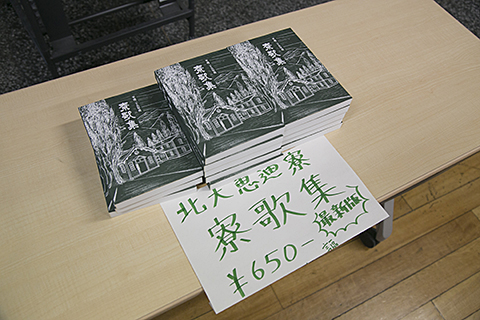 寮歌集
寮歌集
寮歌集
北大恵迪寮
寮歌集
¥650-
最新版